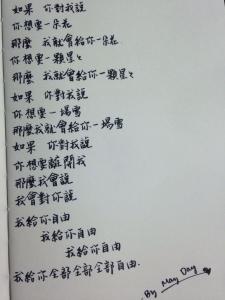 如果 你對我說
你想要一朵花
那麼 我就會給你一朵花
你想要一顆星星
那麼 我就會給你一顆星星
如果 你對我說
你想要一場雪
那麼我就會給你一場雪
如果 你對我說
你想要離開我
那麼我會說
我會對你說
我給你自由
我給你自由
我給你自由
我給你全部全部全部自由.
By May Day